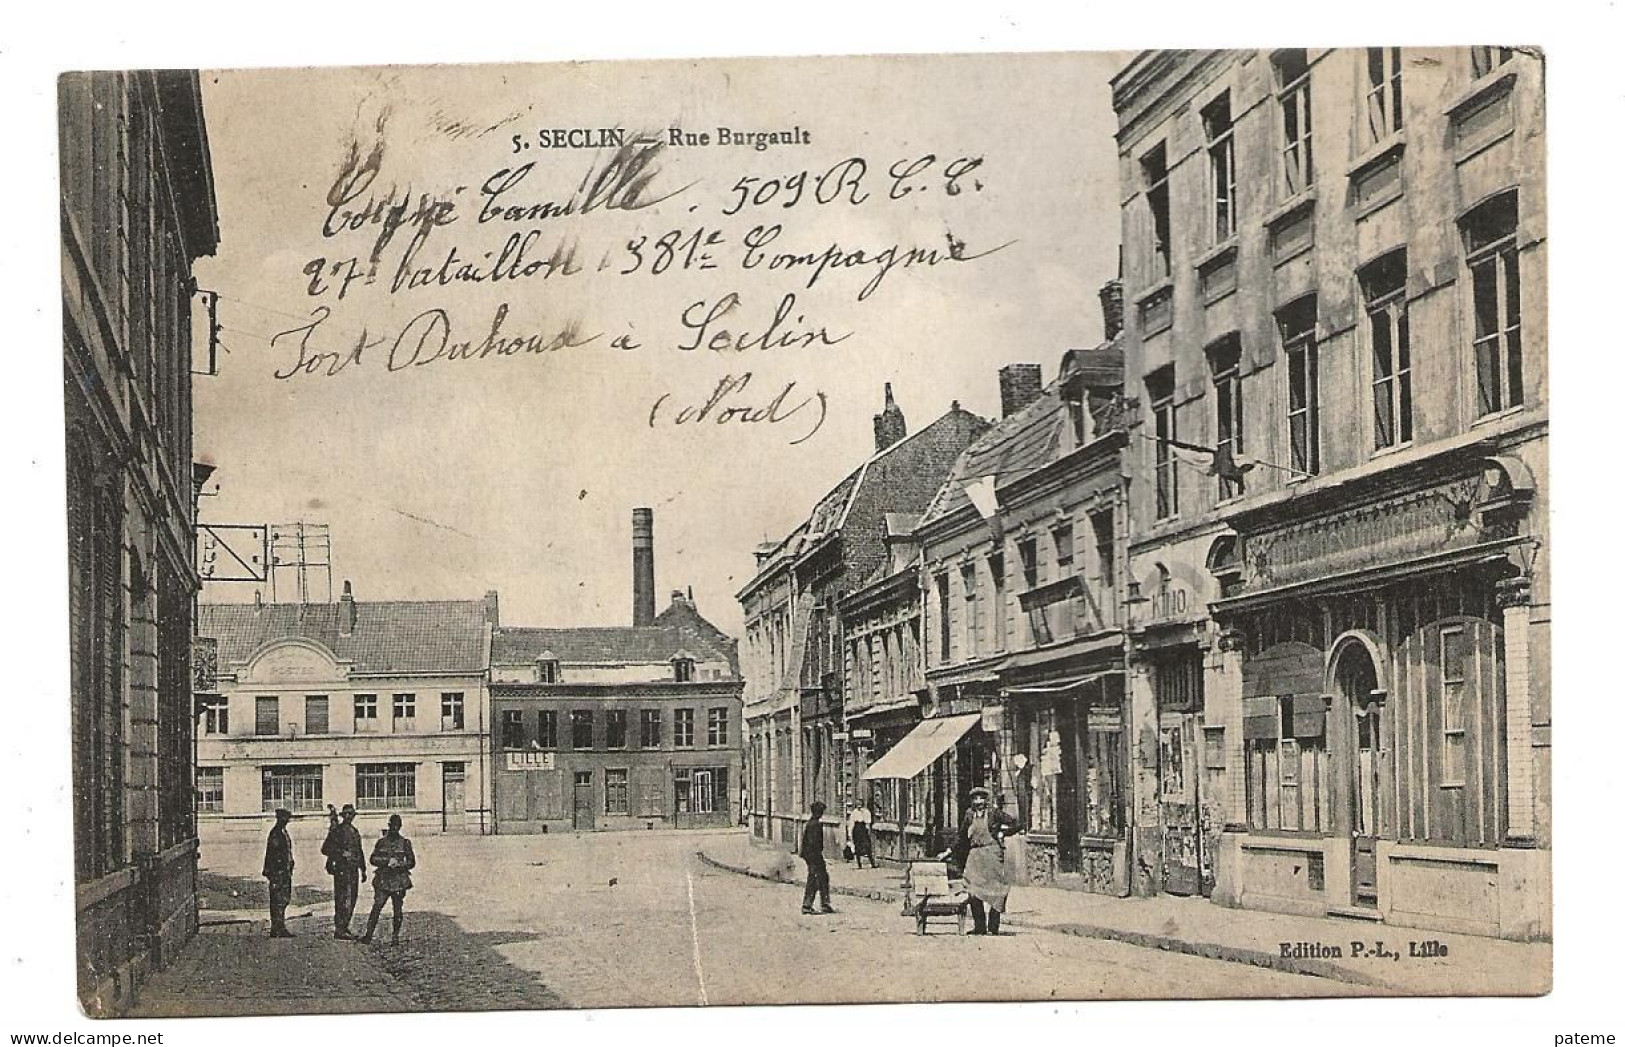 5. SECLIN — Rue Burgault
Coigné Camille. 509 R C. C.
27e bataillon 381e Compagnie
Fort Duhoux à Seclin
(Nord)
POSTES
LILLE
KINO
Edition P.-L., Lille
pateme